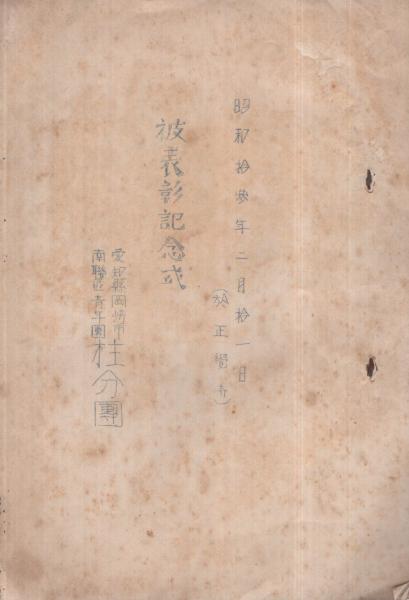 昭和拾參年二月拾一日
(於 正覺寺)
被表彰記念式
愛知縣岡崎市
南聯區青年團
桂分團